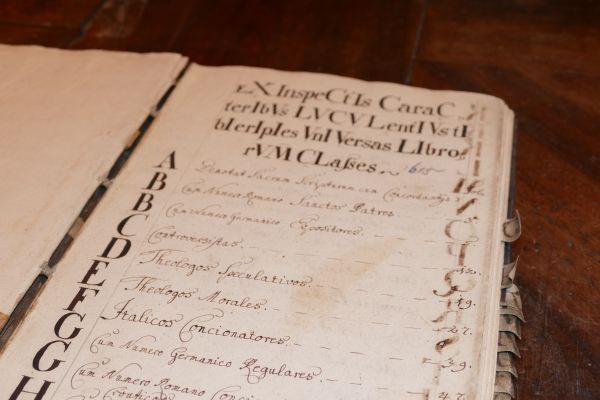 eX InspeCtIs CaraC
terIbVs LVCVLentIVs tI
bI erIpIes VnIVersas LIbro
rVM CLasses.
A Denotat Sacram Scripturam cum Concordantijs
B Cum Numero Romano Sanctos Patres
B Cum Numero Germanico Expositores.
C Controversistas.
D Theologos Speculativos. 12.
E Theologos Morales. 19.
F Italicos Concionatores. 27.
G Cum Numero Germanico Regulares. 39.
G Cum Numero Romano 47.
H